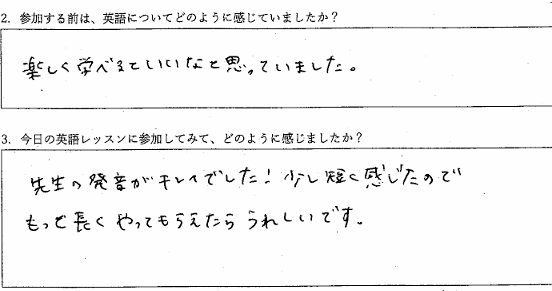 2. 参加する前は、英語についてどのように感じていましたか？
楽しく学べるといいなと思っていました。
3. 今日の英語レッスンに参加してみて、どのように感じましたか？
先生の発音がキレイでした！少し短く感じたので
もっと長くやってもらえたらうれしいです。